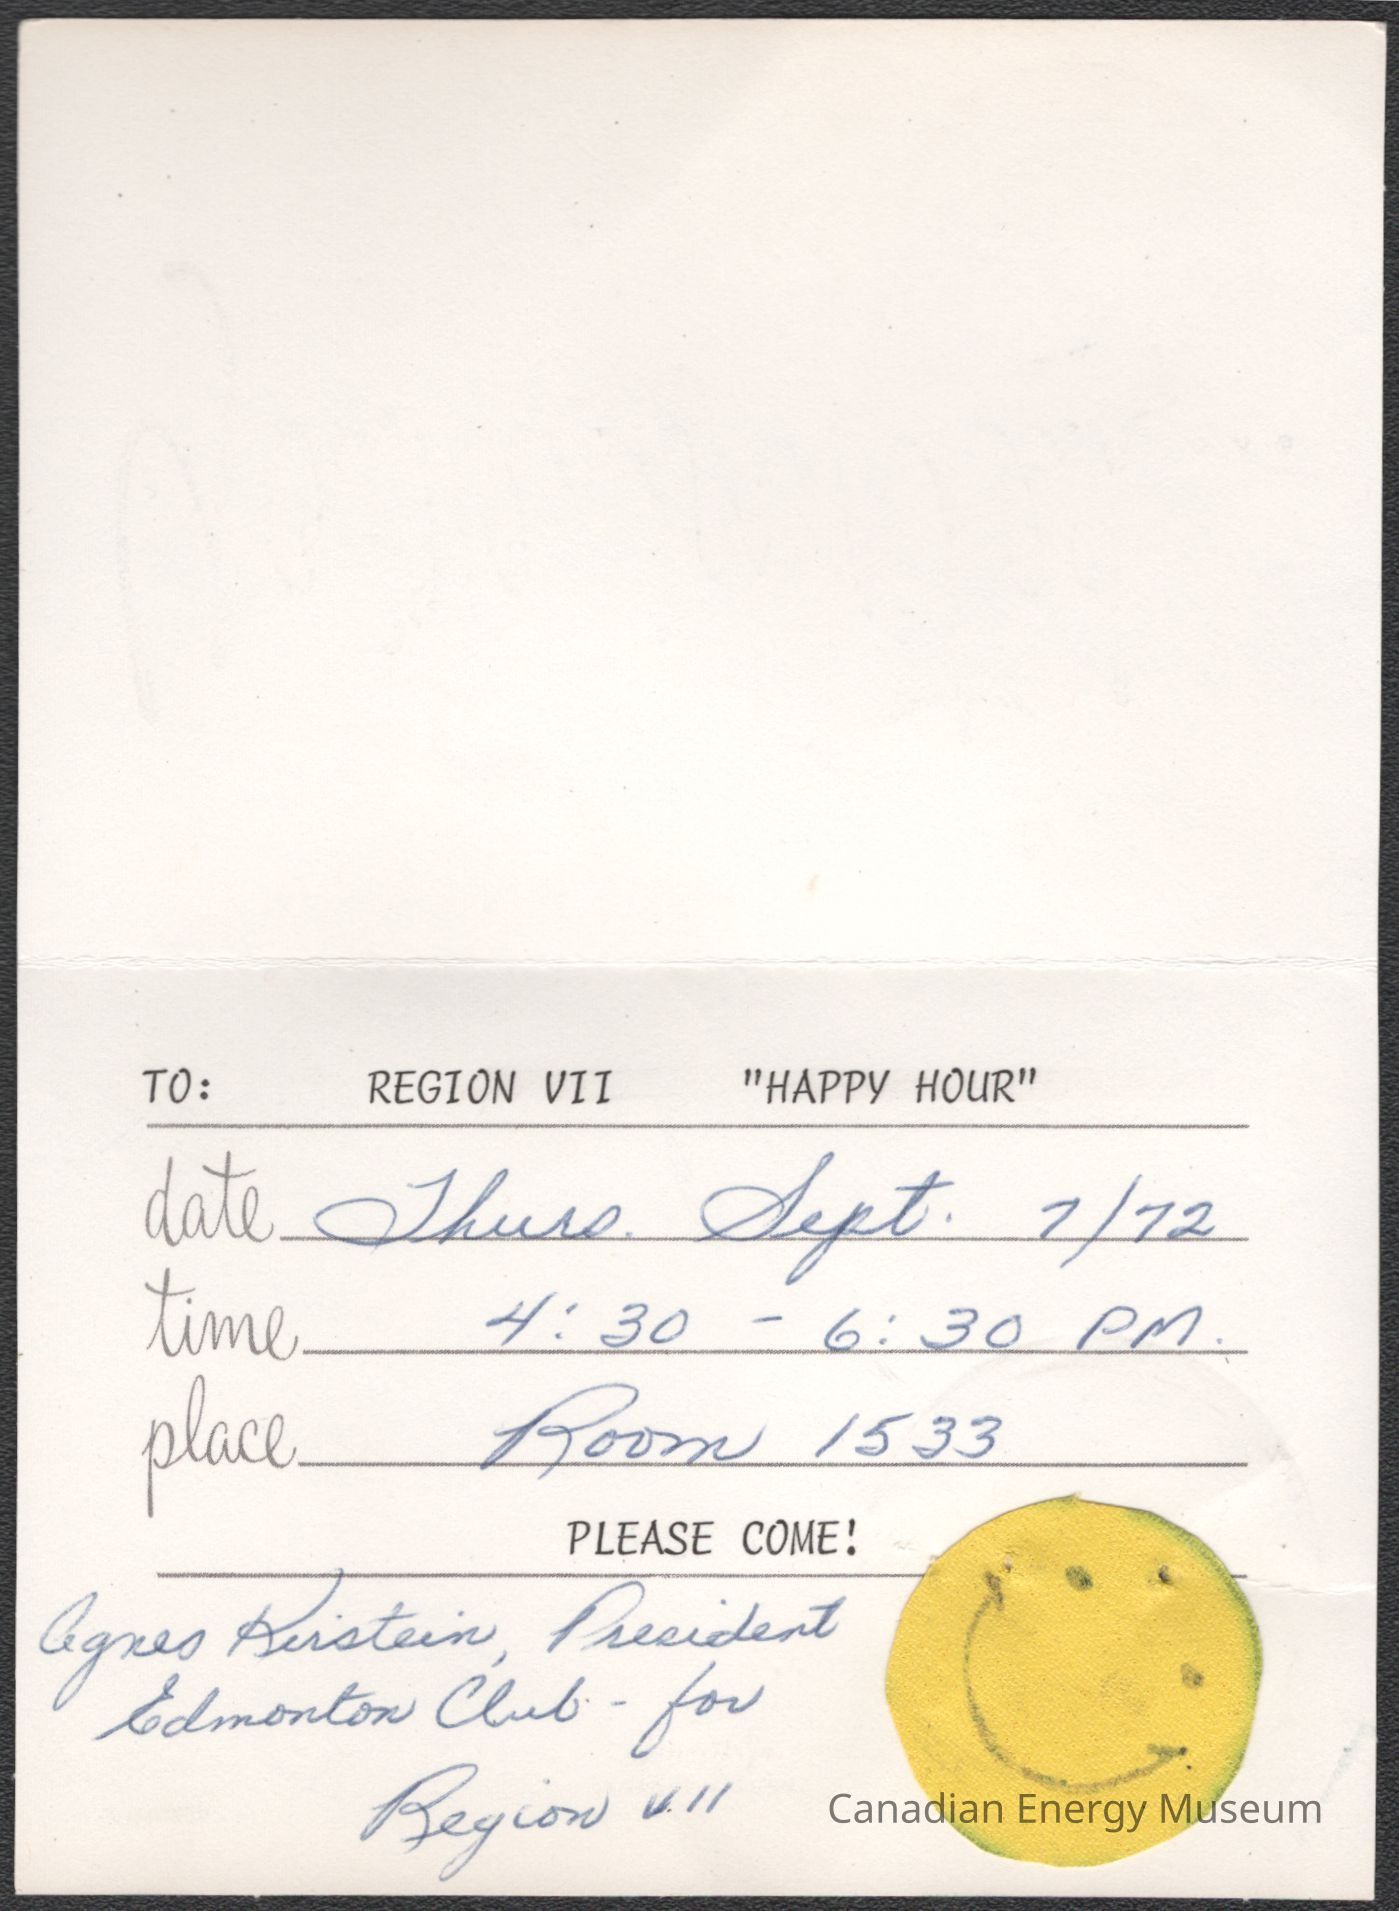 TO: REGION VII "HAPPY HOUR"
date Thurs. Sept. 7/72
time 4:30 - 6:30 PM.
place Room 1533
PLEASE COME!
Agnes Kirstein, President
Edmonton Club - for
Region VII
Canadian Energy Museum